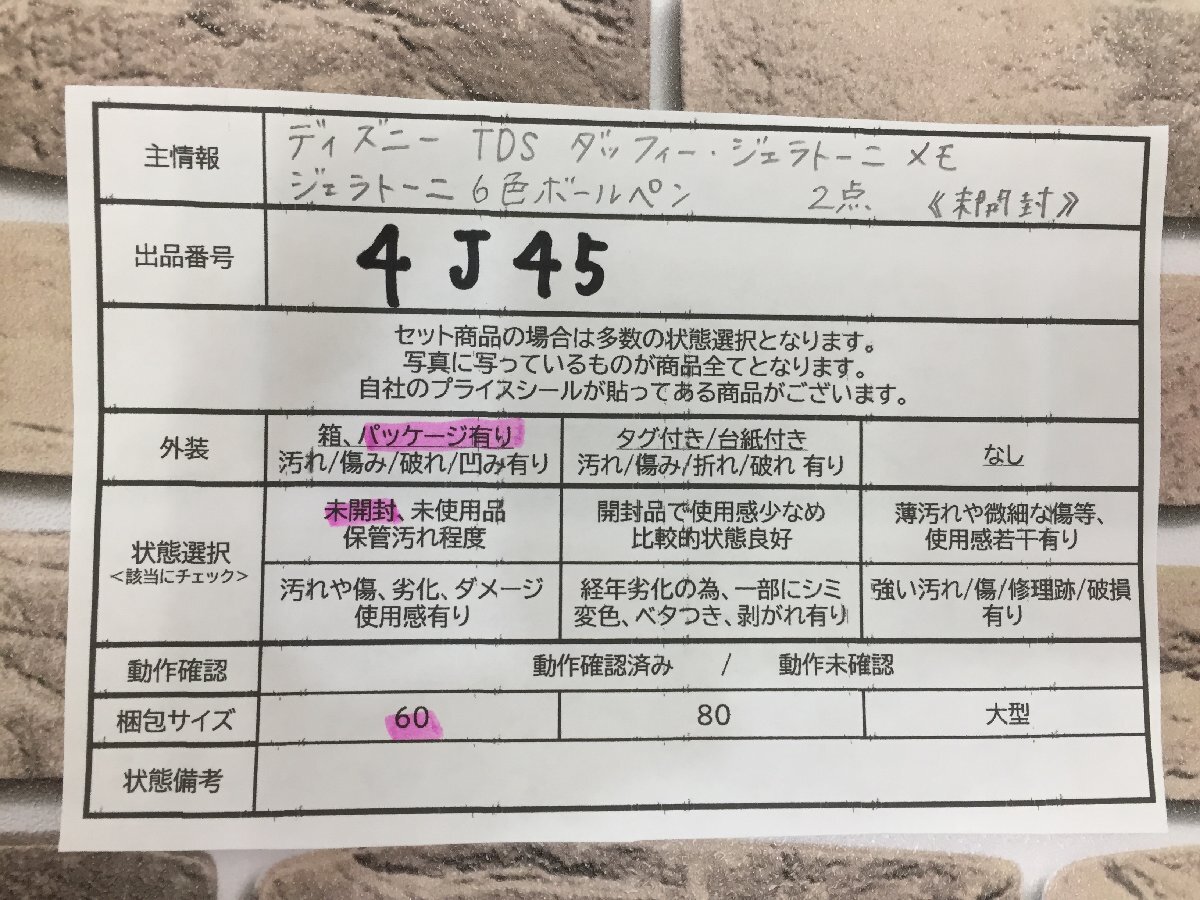 主情報
ディズニー TDS ダッフィー・ジェラトーニ メモ
ジェラトーニ 6色ボールペン 2点 《未開封》
出品番号
4J45
セット商品の場合は多数の状態選択となります。
写真に写っているものが商品全てとなります。
自社のプライスシールが貼ってある商品がございます。
外装
箱、パッケージ有り
汚れ/傷み/破れ/凹み有り
タグ付き/台紙付き
汚れ/傷み/折れ/破れ 有り
なし
状態選択
<該当にチェック>
未開封、未使用品
保管汚れ程度
開封品で使用感少なめ
比較的状態良好
薄汚れや微細な傷等、
使用感若干有り
汚れや傷、劣化、ダメージ
使用感有り
経年劣化の為、一部にシミ
変色、ベタつき、剥がれ有り
強い汚れ/傷/修理跡/破損
有り
動作確認
動作確認済み / 動作未確認
梱包サイズ
60
80
大型
状態備考